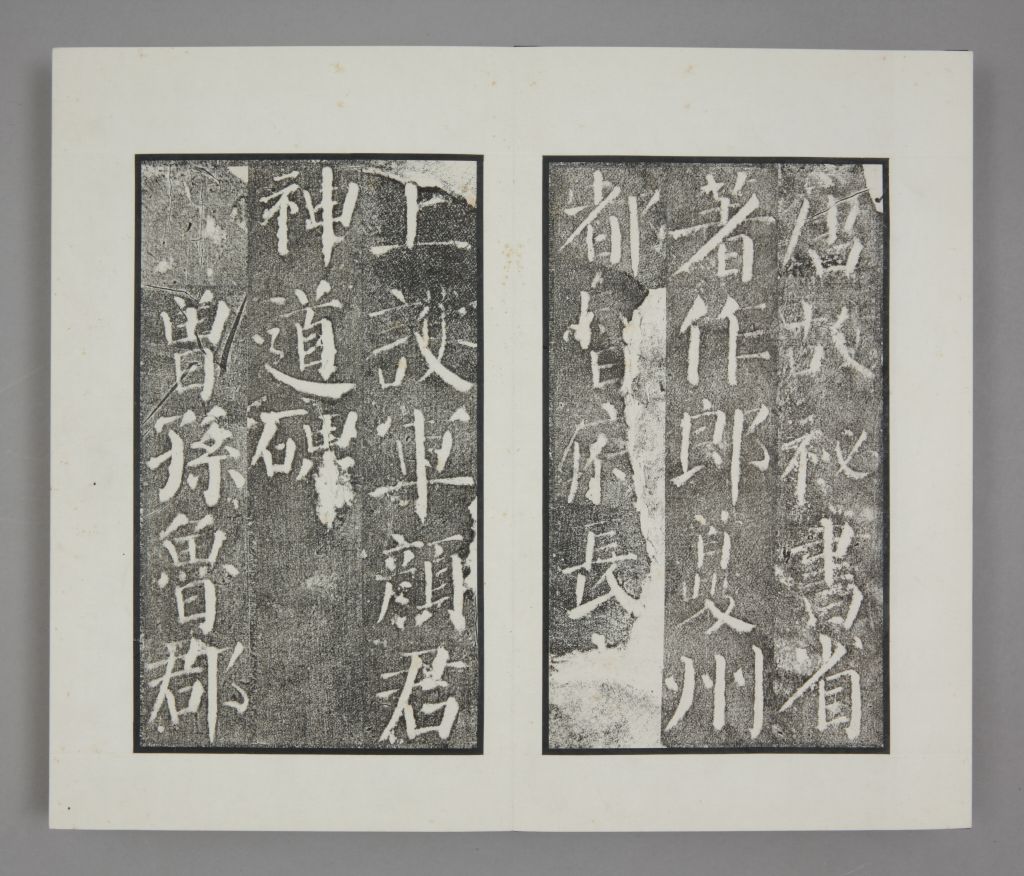 唐故祕書省
著作郎夔州
都督府長
上護軍顏君
神道碑
曾孫魯郡